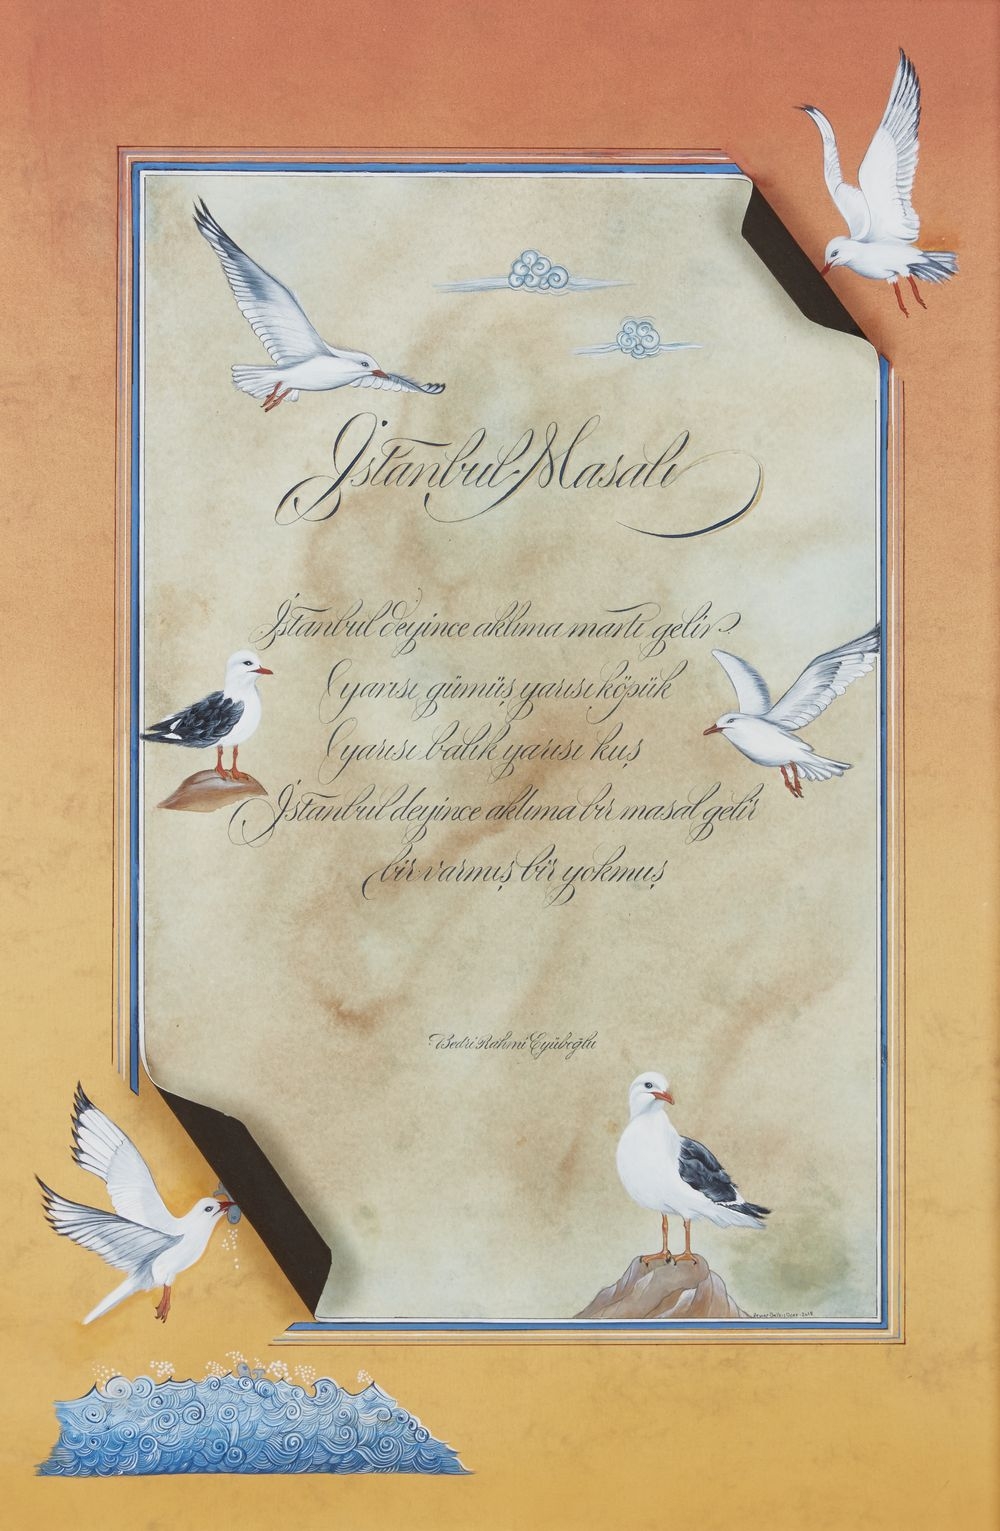 İstanbul Masalı
İstanbul deyince aklıma martı gelir
yarısı gümüş yarısı köpük
yarısı balık yarısı kuş
İstanbul deyince aklıma bir masal gelir
bir varmış bir yokmuş
Bedri Rahmi Eyüboğlu